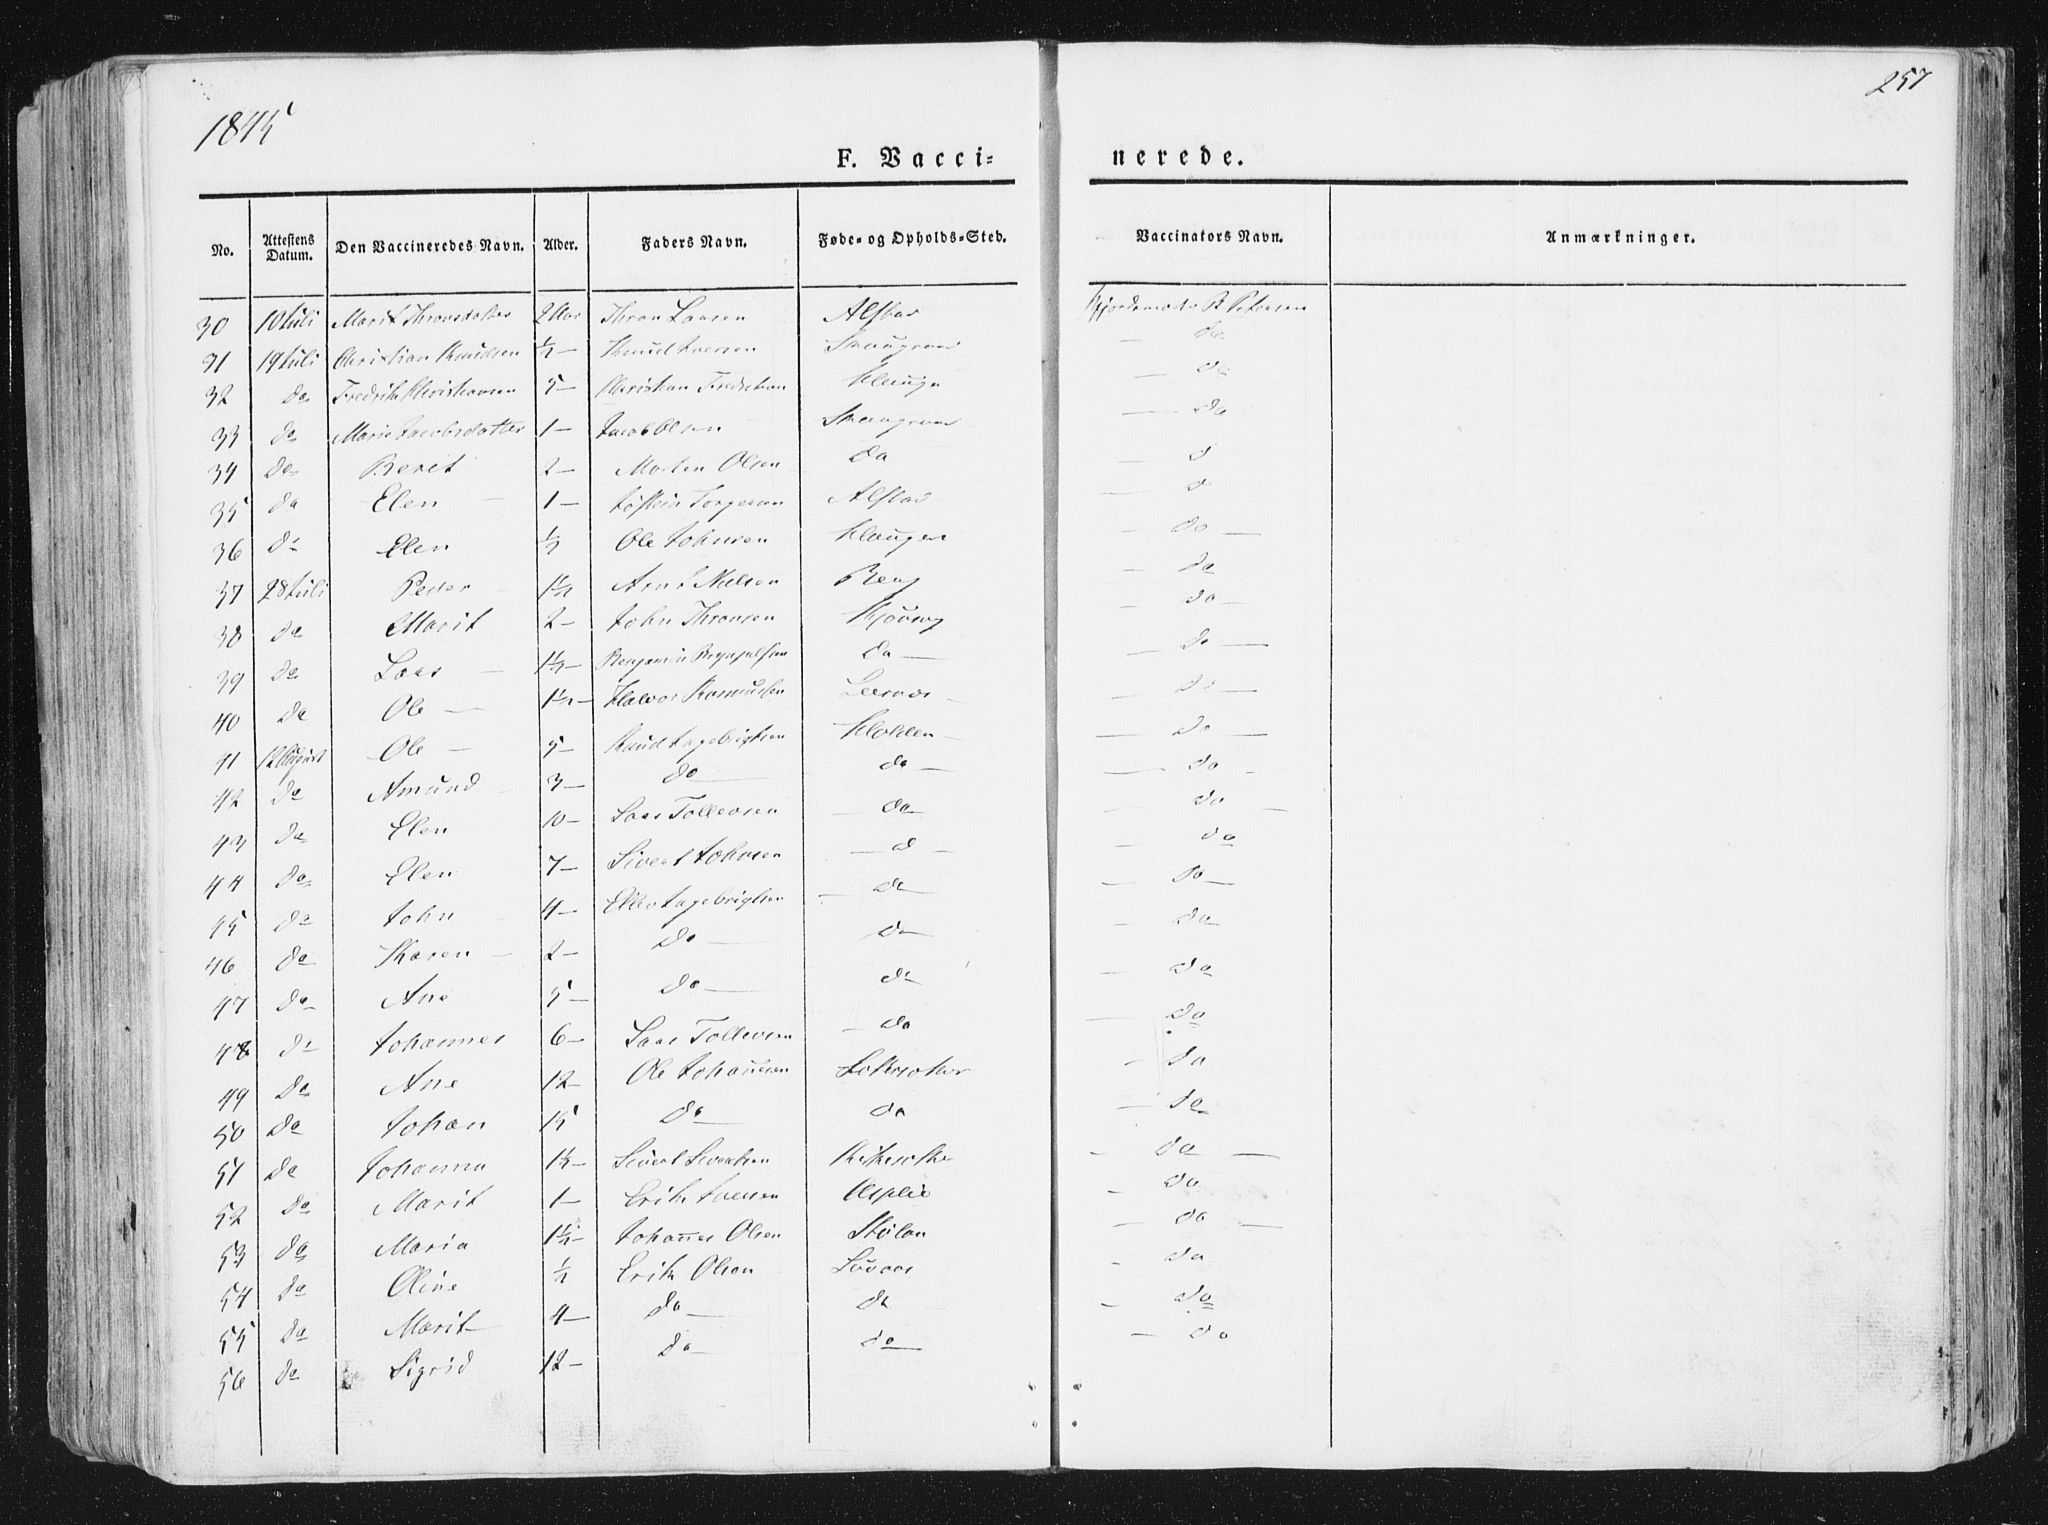 1845
257
F. Vacci=
nerede.
No. Attestens Datum. Den Vaccineredes Navn. Alder. Faders Navn. Føde= og Opholds=Sted. Vaccinators Navn. Anmærkninger.
30 10 Juli Marit Thronsdatter 2 Aar Thron Larsen Alstad Petersen
31 19 Juli Christian Knudsen ½ — Knud Iversen — do
32 do Fredrik Christiansen 5 — Christian Fredriksen — do
33 do Marie Jacobsdatter 1 — Jacob Olsen — do
34 do Berit 2 — Morten Olsen do — d
35 do Elen — 1 — Torgersen Alstad — d
36 do Elen ½ Ole Johnsen — do —
37 28 Juli Peder — 1½ Arnt Nielsen Berg — do
38 do Marit 2 — John Thronsen — do —
39 do Lars — 1½ — Benjamin do — — do —
40 do Ole — 1½ — Halvor Rasmussen — do —
41 12 August Ole — 5 — Knud Ingebrigtsen — do —
42 do Amund — 3 — do — do — — do —
43 do Elen 10 — Lars Tollevsen — do — do —
44 do Elen 7 — Sivert Johnsen — d — — do
45 do John — 4 — Ellev Ingebrigtsen — do — do —
46 do Karen — 2 — do — do — do
47 do Ane 5 — do — do — do
48 do Johannes 6 — Lars Tollevsen — do — do
49 do Ane 12 — Ole Johansen — do
50 do Johan 15 do — do — do
51 do Johanna 1½ — Sivert Sivertsen — do —
52 do Marit 1 — Erik Iversen — do
53 do Maria 1½ — Johannes Olsen Stølan — do —
54 do Oline ½ Erik Olsen — do
55 do Marit 4 — do — do — do
56 do Sigrid 12 — do — do — do